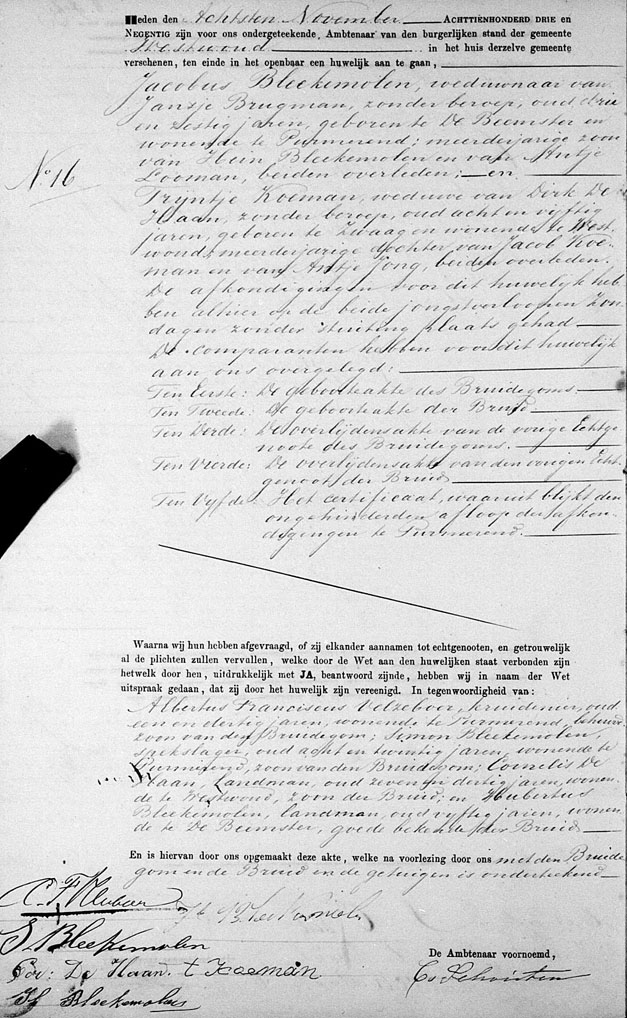 Heden den Achtsten November ACHTTIENHONDERD DRIE en
NEGENTIG zijn voor ons ondergeteekende, Ambtenaar van den burgerlijken stand der gemeente
Westwoud in het huis derzelve gemeente
verschenen, ten einde in het openbaar een huwelijk aan te gaan,
Jacobus Bleekemolen, weduwnaar van
Jansje Brugman, zonder beroep, oud drie
en zestig jaren, geboren te De Beemster en
wonende te Purmerend; meerderjarige zoon
van Hein Bleekemolen en van Antje
Looman, beiden overleden; en
No 16
Trijntje Koeman, weduwe van Dirk De
Haan, zonder beroep, oud acht en vijftig
jaren, geboren te Zwaag en wonende te West-
woud, meerderjarige dochter van Jacob Koe-
man en van Antje Jong, beiden overleden.
De afkondigingen voor dit huwelijk heb-
ben alhier op de beide jongstverloopen Zon-
dagen zonder stuiting plaats gehad
De comparanten hebben voor dit huwelijk
aan ons overgelegd:
Ten Eerste: De geboorteakte des Bruidegoms.
Ten Tweede: De geboorteakte der Bruid
Ten Derde: De overlijdensakte van de vorige Echtge-
noote des Bruidegoms.
Ten Vierde: De overlijdensakte van den vorigen Echt-
genoot der Bruid
Ten Vijfde: Het certificaat, waaruit blijkt den
ongehinderden afloop der afkon-
digingen te Purmerend.
Waarna wij hun hebben afgevraagd, of zij elkander aannamen tot echtgenooten, en getrouwelijk
al de plichten zullen vervullen, welke door de Wet aan den huwelijken staat verbonden zijn
hetwelk door hen, uitdrukkelijk met JA, beantwoord zijnde, hebben wij in naam der Wet
uitspraak gedaan, dat zij door het huwelijk zijn vereenigd. In tegenwoordigheid van:
Albertus Franciscus Velzeboer, kruidenier, oud
een en dertig jaren, wonende te Purmerend, behuwd-
zoon van den Bruidegom; Simon Bleekemolen,
spekslager, oud acht en twintig jaren, wonende te
Purmerend, zoon van den Bruidegom; Cornelis De
Haan, Landman, oud zeven en dertig jaren, wonen-
de te Westwoud, zoon der Bruid; en Hubertus
Bleekemolen, landman, oud vijftig jaren, wonen-
de te De Beemster, goede bekende der Bruid
En is hiervan door ons opgemaakt deze akte, welke na voorlezing door ons met den Bruide-
gom en de Bruid en de getuigen is onderteekend
S. Bleekemolen
De Ambtenaar voornoemd,
Cor: De Haan. t Koeman
Bleekemolen